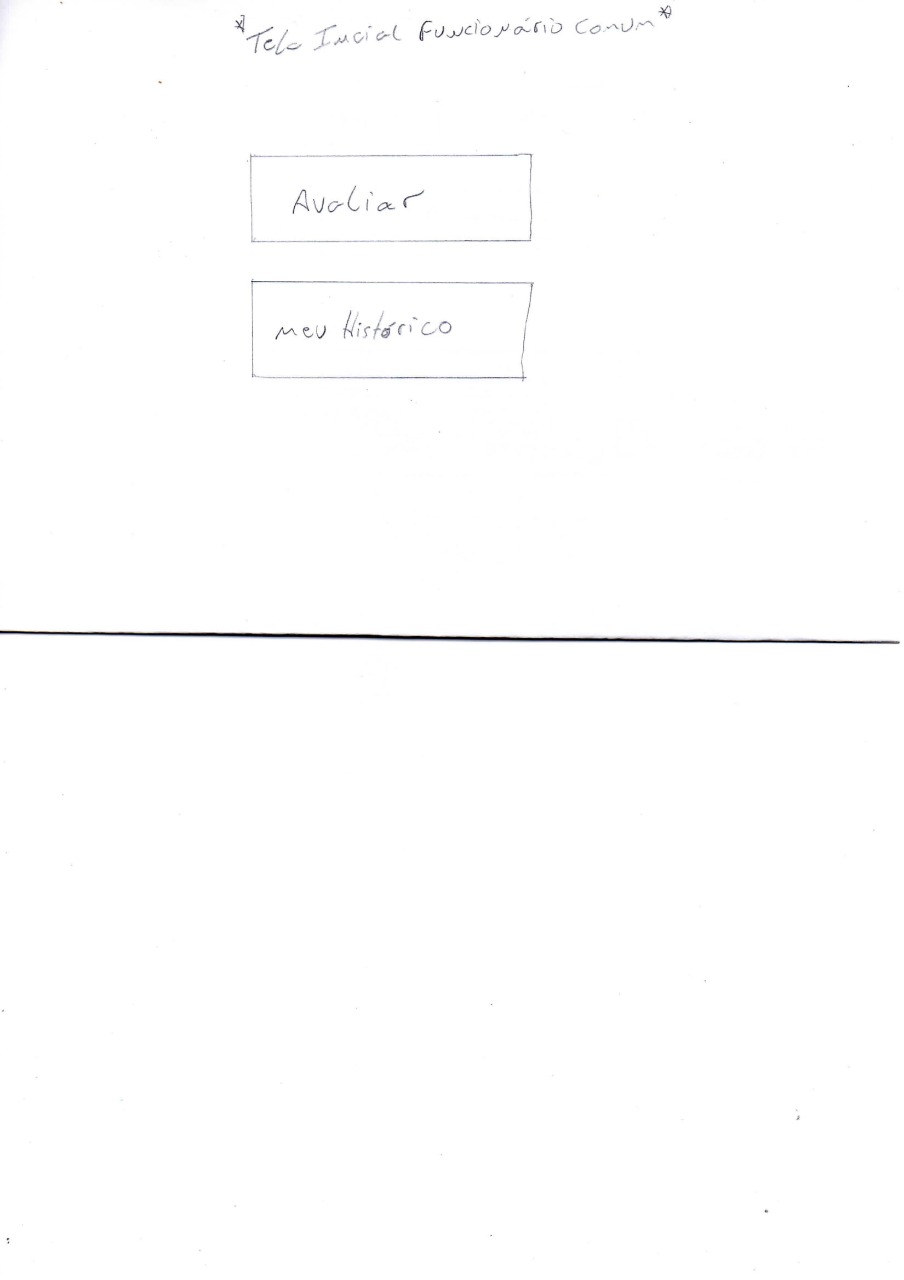 *Tela Inicial Funcionário Comum*
Avaliar
Meu Histórico